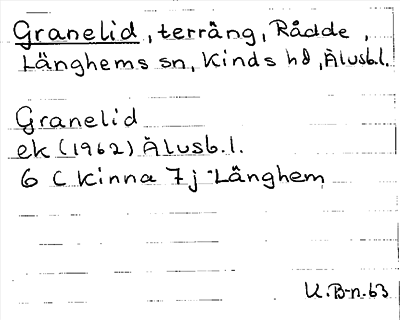 Granelid, terräng, Rådde,
Länghems sn, Kinds hd, Älvsb.l.
Granelid
ek (1962) Älvsb.l.
6 C Kinna 7j Länghem
U.B-n.63